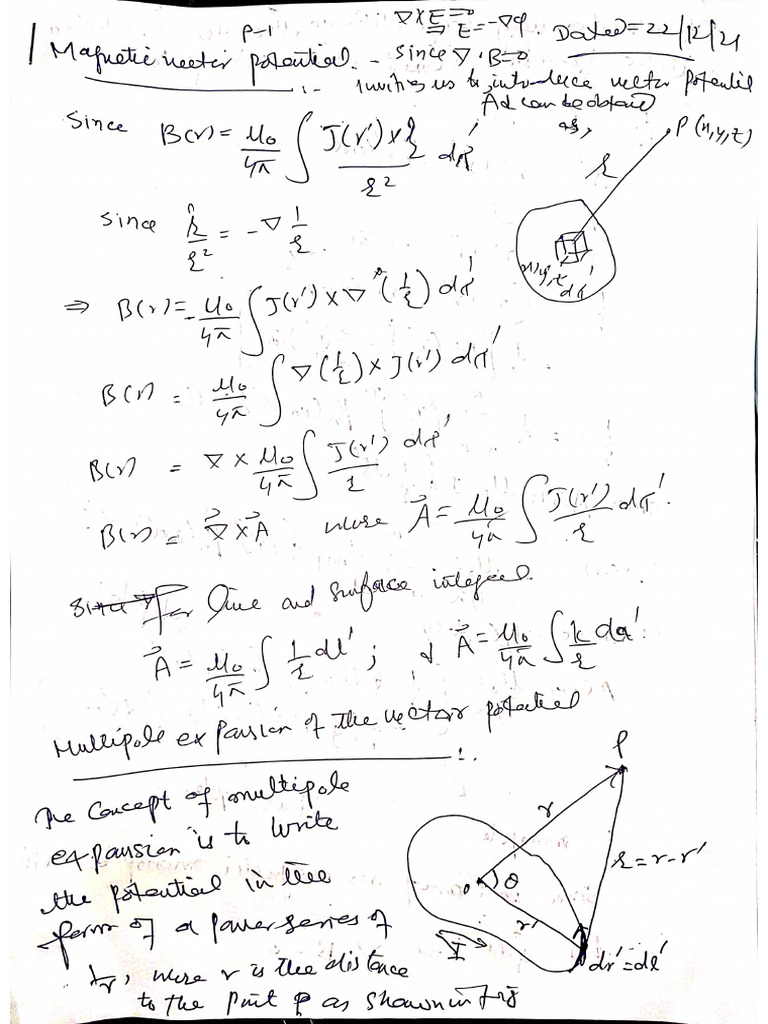 P-1
∇×E=0
⇒ E=-∇φ. Dated=22/12/21
1 Magnetic vector potential. - Since ∇·B=0
invites us to introduce vector potential
A & can be obtained
as,
Since B(r) = μ₀/4π ∫ J(r')×r̂/r² dτ'
P(x,y,z)
r
Since r̂/r² = -∇ 1/r
x',y',z'
dτ'
⇒ B(r) = -μ₀/4π ∫ J(r')×∇(1/r) dτ'
B(r) = μ₀/4π ∫ ∇(1/r) × J(r') dτ'
B(r) = ∇× μ₀/4π ∫ J(r')/r dτ'
B(r) = ∇⃗×A⃗ where A⃗ = μ₀/4π ∫ J(r')/r dτ'.
For line and surface integral.
A⃗ = μ₀/4π ∫ I/r dl' ; & A⃗ = μ₀/4π ∫ k/r da'
Multipole expansion of the vector potential
The concept of multipole
expansion is to write
the potential in the
form of a power series of
1/r, where r is the distance
to the point P as shown in fig
P
r
r = r-r'
o θ
r'
I
dr'=dl'